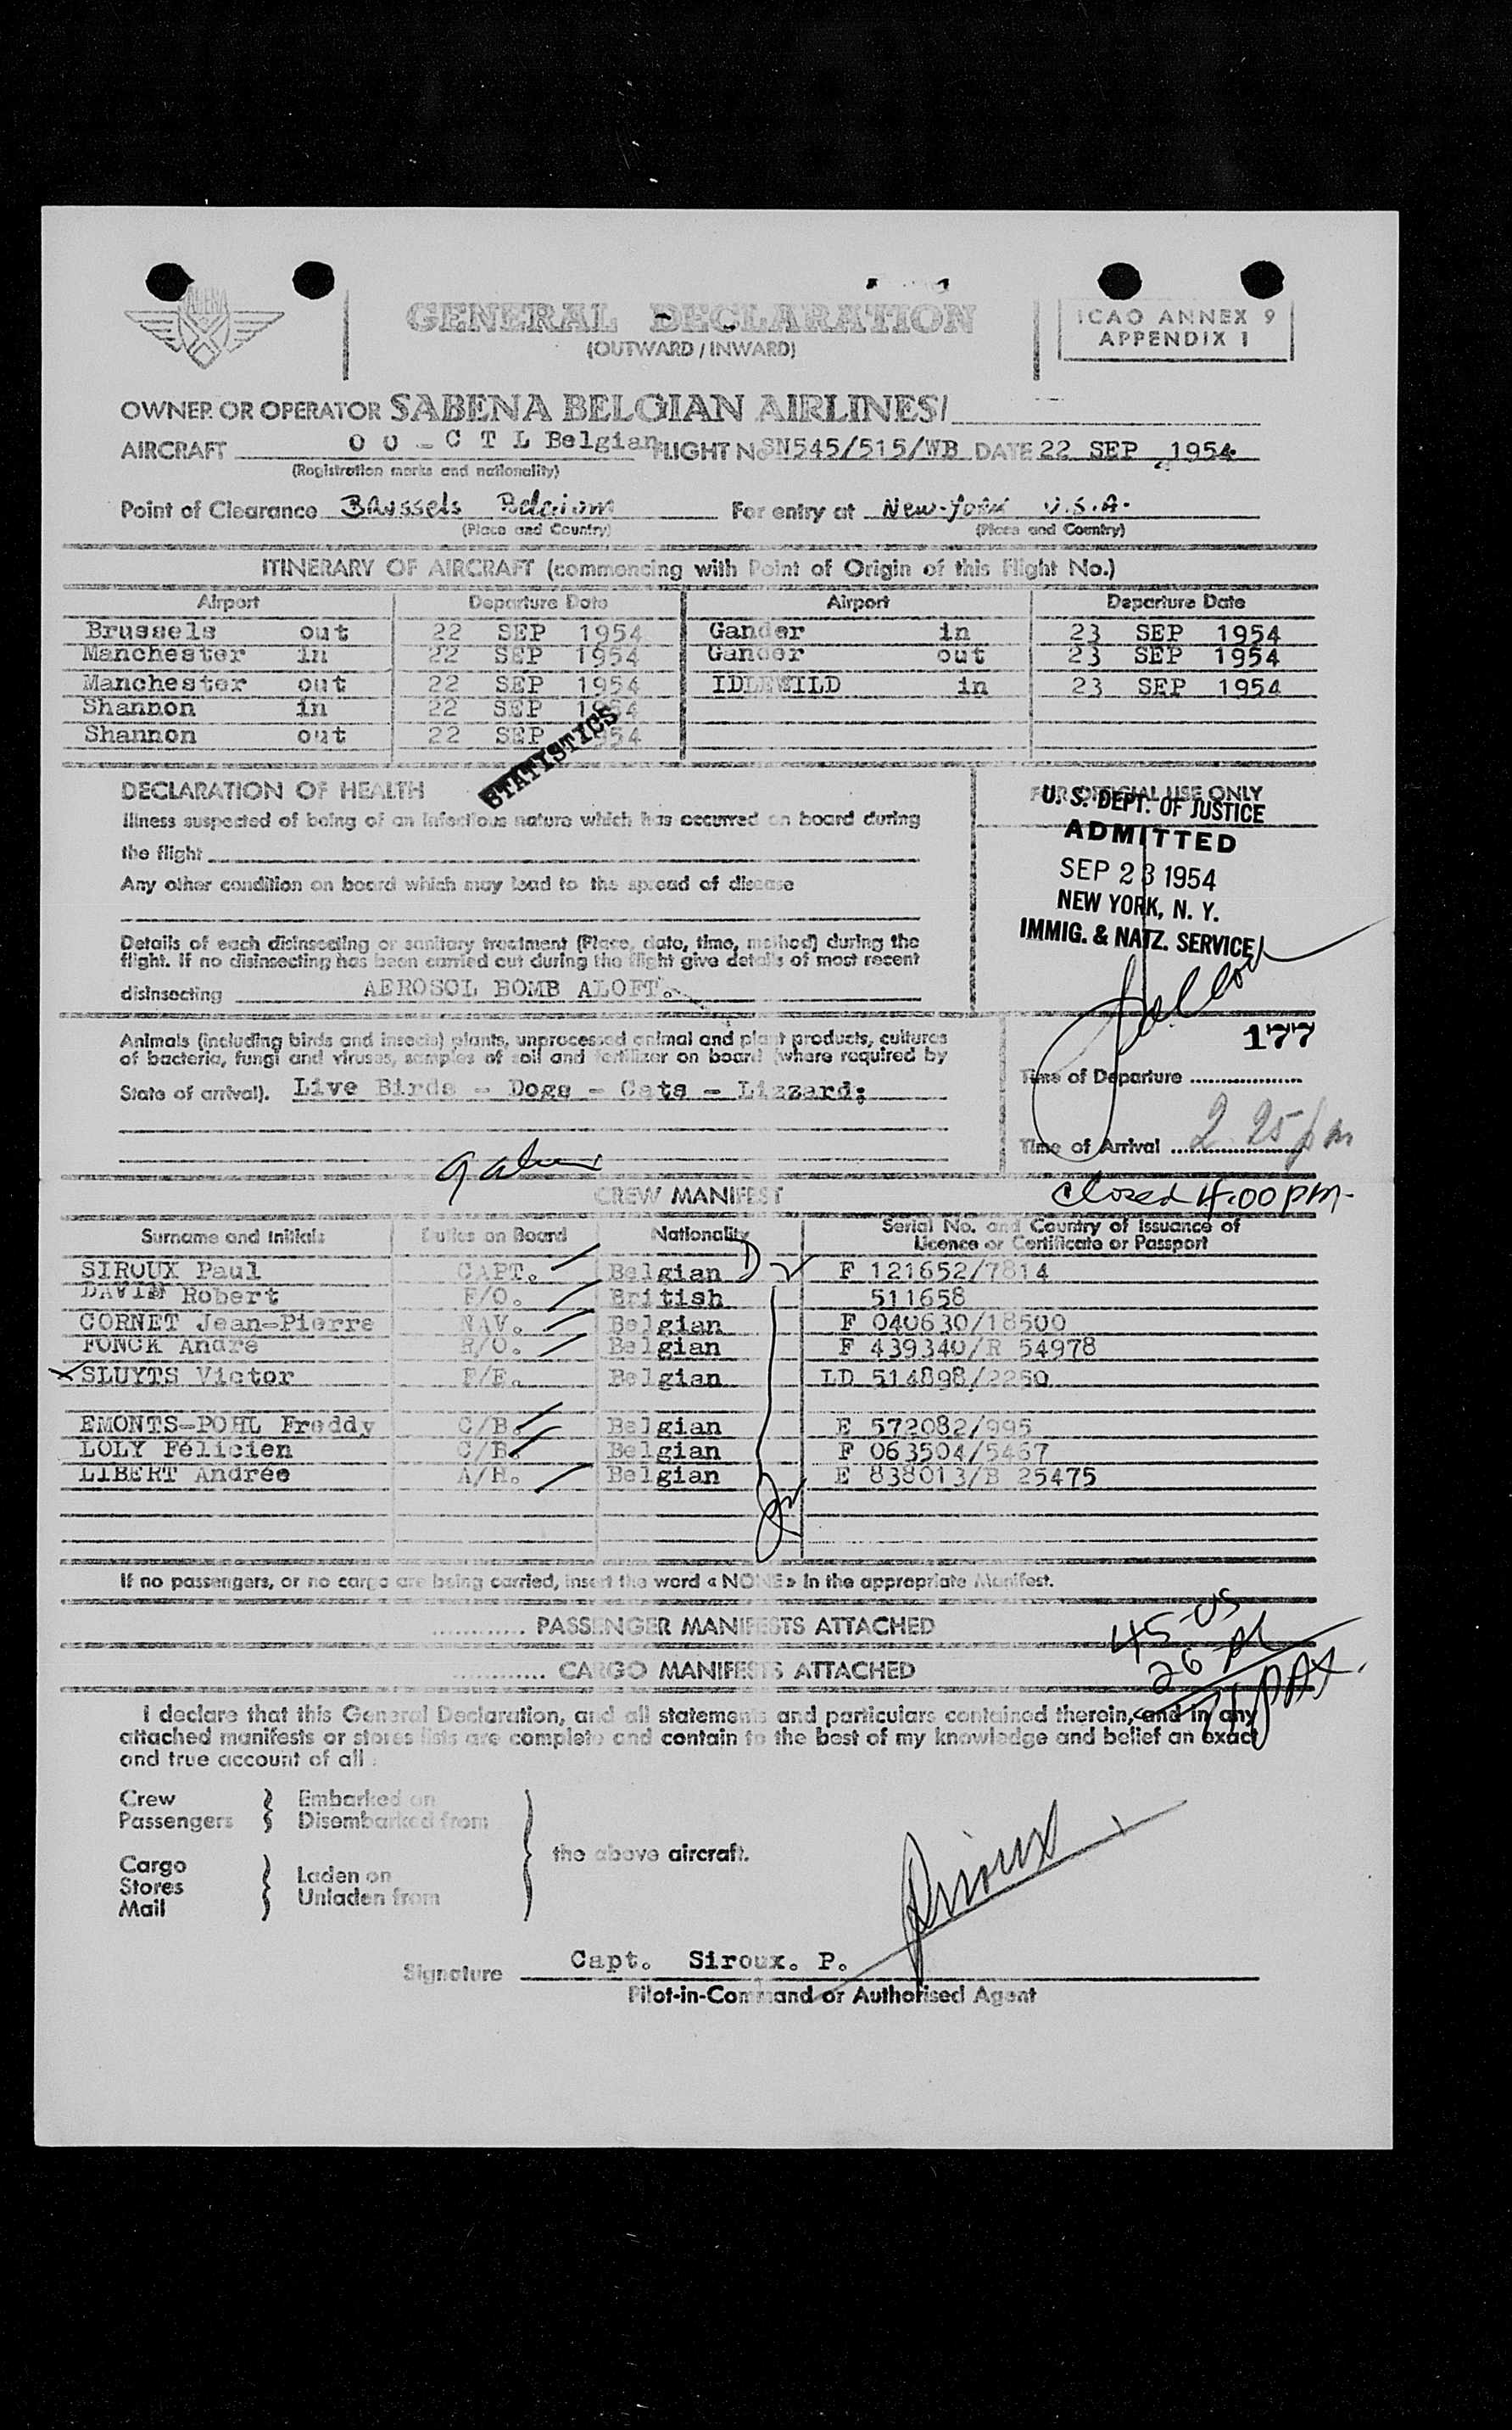 SABENA
GENERAL DECLARATION
(OUTWARD / INWARD)
ICAO ANNEX 9
APPENDIX 1
OWNER OR OPERATOR SABENA BELGIAN AIRLINES/
AIRCRAFT O O - C T L Belgian FLIGHT No SN545/515/WB DATE 22 SEP 1954
(Registration marks and nationality)
Point of Clearance Brussels Belgium For entry at New-York U.S.A.
(Place and Country) (Place and Country)
ITINERARY OF AIRCRAFT (commencing with Point of Origin of this Flight No.)
Airport Departure Date Airport Departure Date
Brussels out 22 SEP 1954 Gander in 23 SEP 1954
Manchester in 22 SEP 1954 Gander out 23 SEP 1954
Manchester out 22 SEP 1954 IDLEWILD in 23 SEP 1954
Shannon in 22 SEP 1954
Shannon out 22 SEP 1954
STATISTICS
DECLARATION OF HEALTH
Illness suspected of being of an infectious nature which has occurred on board during
the flight
Any other condition on board which may lead to the spread of disease
Details of each disinsecting or sanitary treatment (Place, date, time, method) during the
flight. If no disinsecting has been carried out during the flight give details of most recent
disinsecting AEROSOL BOMB ALOFT.
FOR OFFICIAL USE ONLY
U. S. DEPT. OF JUSTICE
ADMITTED
SEP 23 1954
NEW YORK, N. Y.
IMMIG. & NATZ. SERVICE
177
Animals (including birds and insects) plants, unprocessed animal and plant products, cultures
of bacteria, fungi and viruses, samples of soil and fertilizer on board (where required by
State of arrival). Live Birds - Dogs - Cats - Lizzard;
Time of Departure
Time of Arrival 2 25 pm
Closed 4:00 PM-
CREW MANIFEST
Surname and Initials Duties on Board Nationality Serial No. and Country of Issuance of
Licence or Certificate or Passport
SIROUX Paul CAPT. Belgian F 121652/7814
DAVIN Robert F/O. British 511658
CORNET Jean-Pierre NAV. Belgian F 040630/18500
FONCK André R/O. Belgian F 439340/R 54978
X SLUYTS Victor F/E. Belgian LD 514898/2250
EMONTS-POHL Freddy C/B. Belgian E 572082/995
LOLY Félicien C/B. Belgian F 063504/5467
LIBERT Andrée A/H. Belgian E 838013/B 25475
If no passengers, or no cargo are being carried, insert the word « NONE » in the appropriate Manifest.
............ PASSENGER MANIFESTS ATTACHED
............ CARGO MANIFESTS ATTACHED
45 US
26 Al
71 PAX.
I declare that this General Declaration, and all statements and particulars contained therein, and in any
attached manifests or stores lists are complete and contain to the best of my knowledge and belief an exact
and true account of all :
Crew Embarked on
Passengers Disembarked from
the above aircraft.
Cargo
Stores Laden on
Mail Unladen from
Siroux
Signature Capt. Siroux. P.
Pilot-in-Command or Authorised Agent